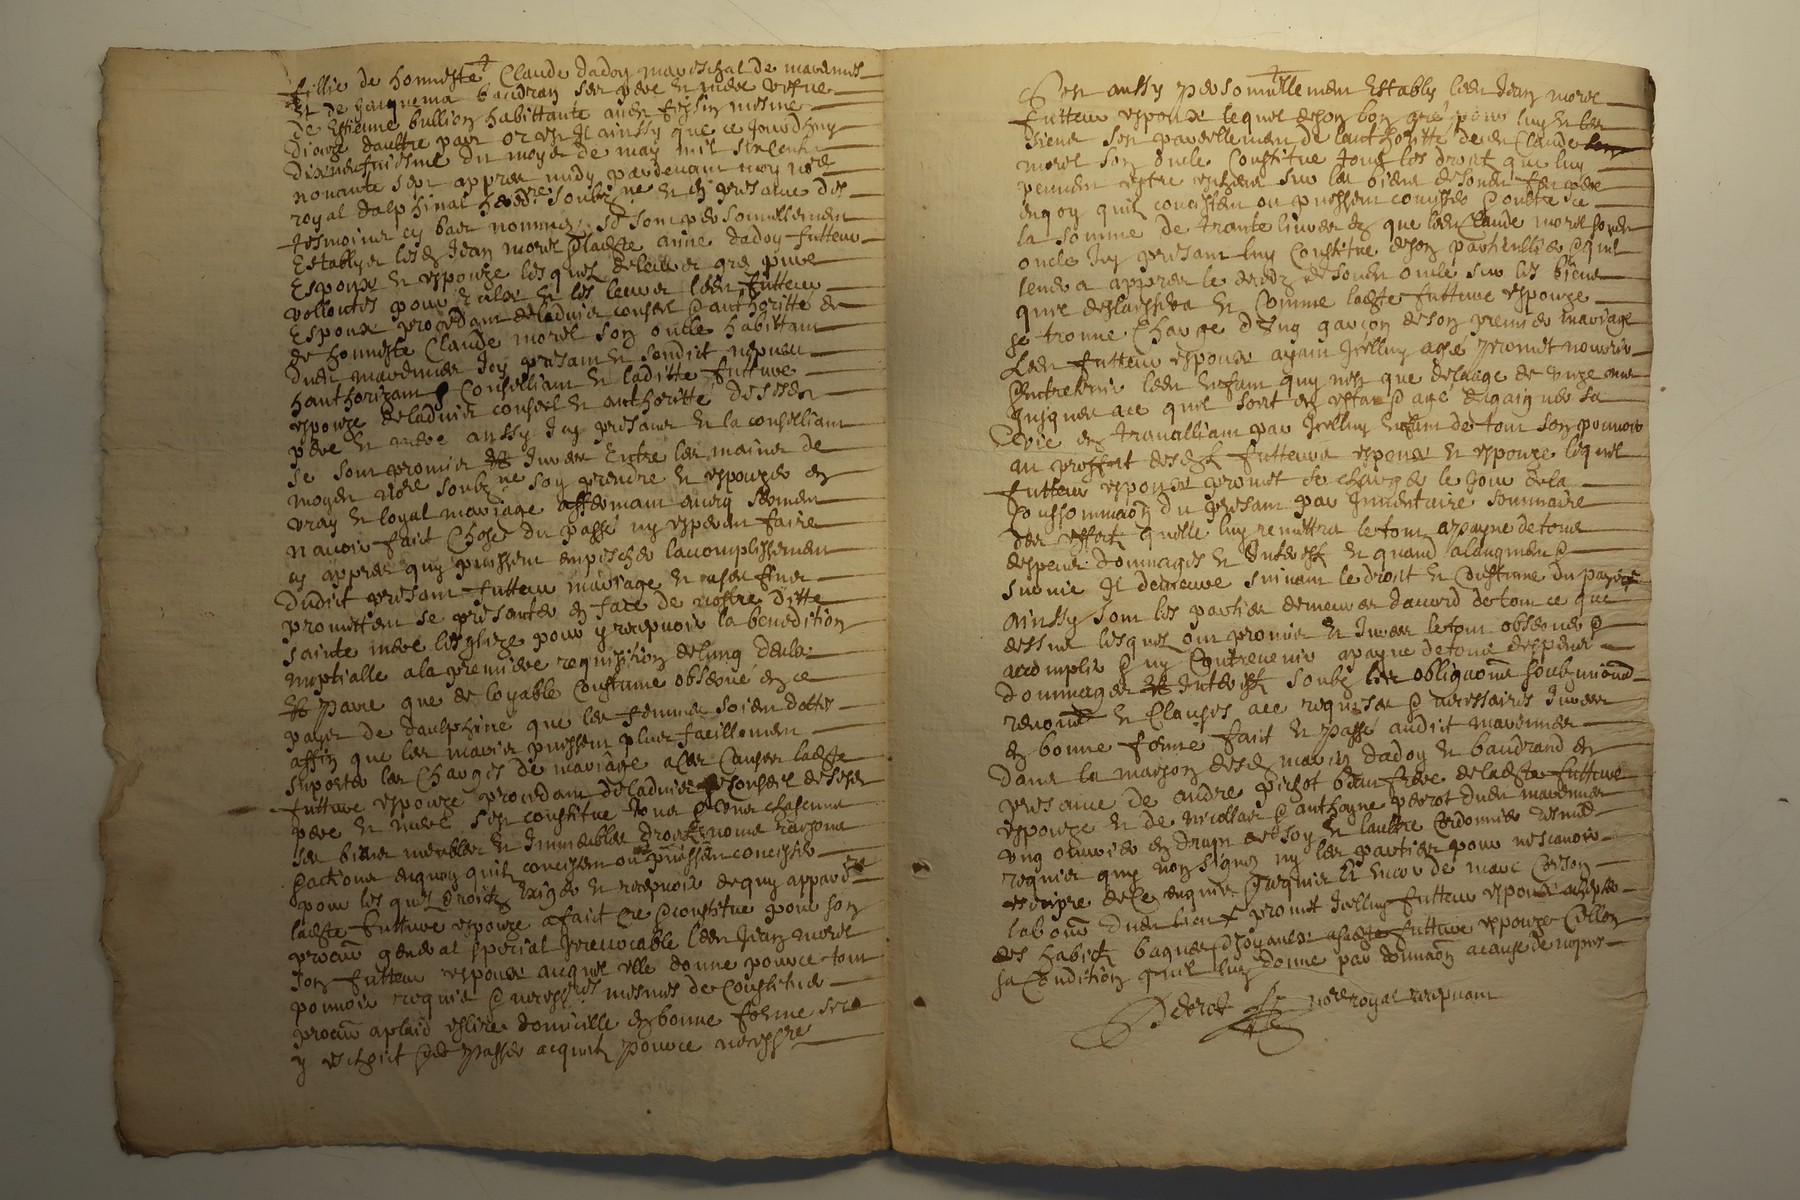 fillie de honneste Claude dadoy mareschal de marennes
et de Jaiquema baudran ses pere et mere vefve
de Estienne bullion habittante aud fezin mesme
dioceze daultre part or est Il ainssy que ce Jourdhuy
du moys de may mil six cents
nonante sept appres midy pardevant moy nore
royal dalphinal heredre soubzne et en presance des
tesmoins cy bas nommes, se sont personnellement
establys lesd Jean morel & ladte anne dadoy futteur
Espoux et espouze lesquels de leur gre pure
vollontes pour et les leurs led futteur
Espoux procedant de ladvis conseil & authoritte de
de honneste Claude morel son oncle habittant
dud marennes Icy presant et sondict nepveu
hauthorizant Conseilliant et laditte futture
espouze de ladvis conseil et authoritte de sesd
pere et mere aussy Icy presans et la conseilliant
se sont promis et Jures Entre les mains de
moyd nore soubzne soy prendre et espouzer en
vray et loyal mariage affermant avecq serment
navoir faict Chose du passé ny esperer faire
cy appres quy puissent empescher lacomplissement
dudict presant futteur mariage et a ces fins
promettent se presanter en face de nostre ditte
sainte mere lesglize pour y recepvoir la benediction
nuptialle a la premiere requisition de lung de la
et parce que de loyable Coustume observé en ce
pays de daulphine que les femmes soient dottes
affin que les maris puissent plus facillement
suporter les Charges de mariage a ces Causes ladte
futture espouze procedant de ladvis & Conseil de sesd
pere et mere sest constitue tous & Uns chascuns
ses biens meubles et Immeubles droictz noms raisons
& actions en quoy quilz concistent ou puissent concister
pour lesquels droictz Exiger et recepvoir de quy appardra
ladte futture espouze a faict cree & constitue pour son
procur general special Irrevocable led Jean morel
son futteur espoux auquel elle donne pouvoir tout
pouvoir requis & necessres mesmes de Constituer
procur a plaid eslire domicille en bonne forme sera
y eschoict & de passer acquitz pource necessre
Sest aussy personnellement Establi led Jean morel
futteur espoux lequel de son bon gré pour luy et les
siens soy pareillement de lauthoritte dud Claude
morel son oncle Constitue tous les droict que luy
peuvent estre escheus sur les biens de sond feu pere
en quoy quilz concistent ou puissent concister & oultre ce
la somme de trante livres tz que led Claude morel sond
oncle Icy presant luy Constitue de son particullier & quil
tend a appres le deceds de sond oncle sur les biens
quil deslaissera et Comme ladte futture espouze
se trouve Charge dUng garçon de son premier mariage
Led futteur espoux ayant Icelluy agé promet nourrir
& entretenir led enfant quy nest que de laage de onze ans
Jusques a ce quil soit en estat & age de gaigner sa
vie en travalliant par Icelluy enfant de tout son pouvoir
au proffict desdz futteurs espoux et espouze lequel
futteur espoux promet se charger le jour de la
Conssommaon du presant par Inventaire sommaire
des effectz quelle luy remettra le tout a payne de tous
despens dommages et Interestz et quand a laugment &
survie Il demeure suivant le droict et Coustume du pays
ainssy sont les parties demeures daccord de tout ce que
dessus lesquels ont promis et Jures le tout observer &
accomplir & ny Contrevenir a payne de tous despens
dommages et Interestz soubz les obligaons soubzmissions
renons et Clauses a ce requises & necessaires Jurees
en bonne forme faict et passé audict marennes
dans la maison desdz maries dadoy et baudrand en
presance de andre pichot beau frere de ladte futture
espouze et de nicollas & anthoyne perrot dud marennes
ung ouvrier en drap de soy et laultre Cordonnier tesmoins
requis quy nont signes ny les parties pour ne scavoir
escripre de ce enquis & requis et encor de marc Coison
labour dud lieu promet Icelluy futteur espoux
des habitz bagues & Joyaux a ladte futture espouze Cellon
sa Condition quil luy donne par donnaon a cause de nopces
Perrot nore royal recepvant